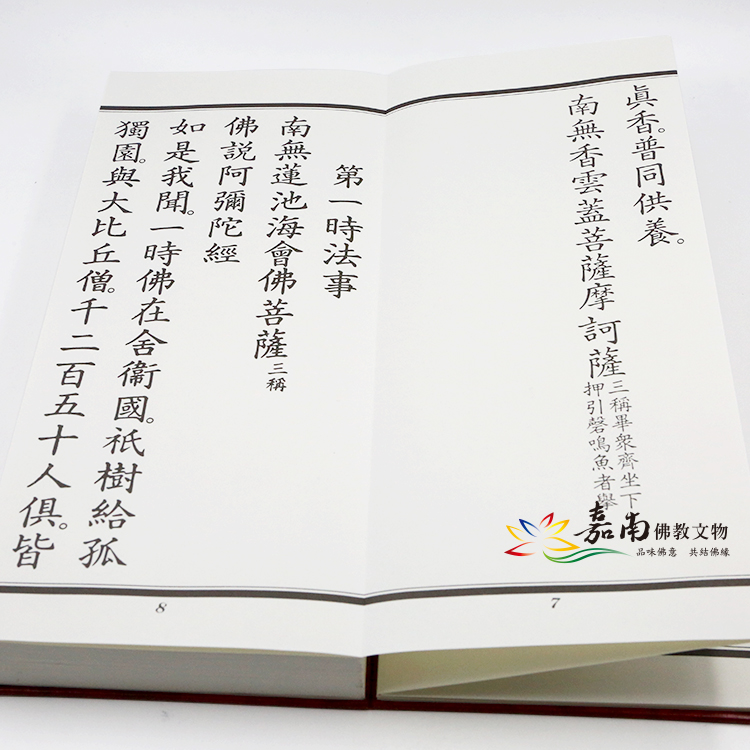 眞香。普同供養。
南無香雲蓋菩薩摩訶薩三稱畢衆齊坐下
押引磬鳴魚者舉
7
第一時法事
南無蓮池海會佛菩薩三稱
佛說阿彌陀經
如是我聞。一時佛在舍衞國。祇樹給孤
獨園。與大比丘僧。千二百五十人俱。皆
8
嘉南佛教文物
品味佛意 共結佛緣